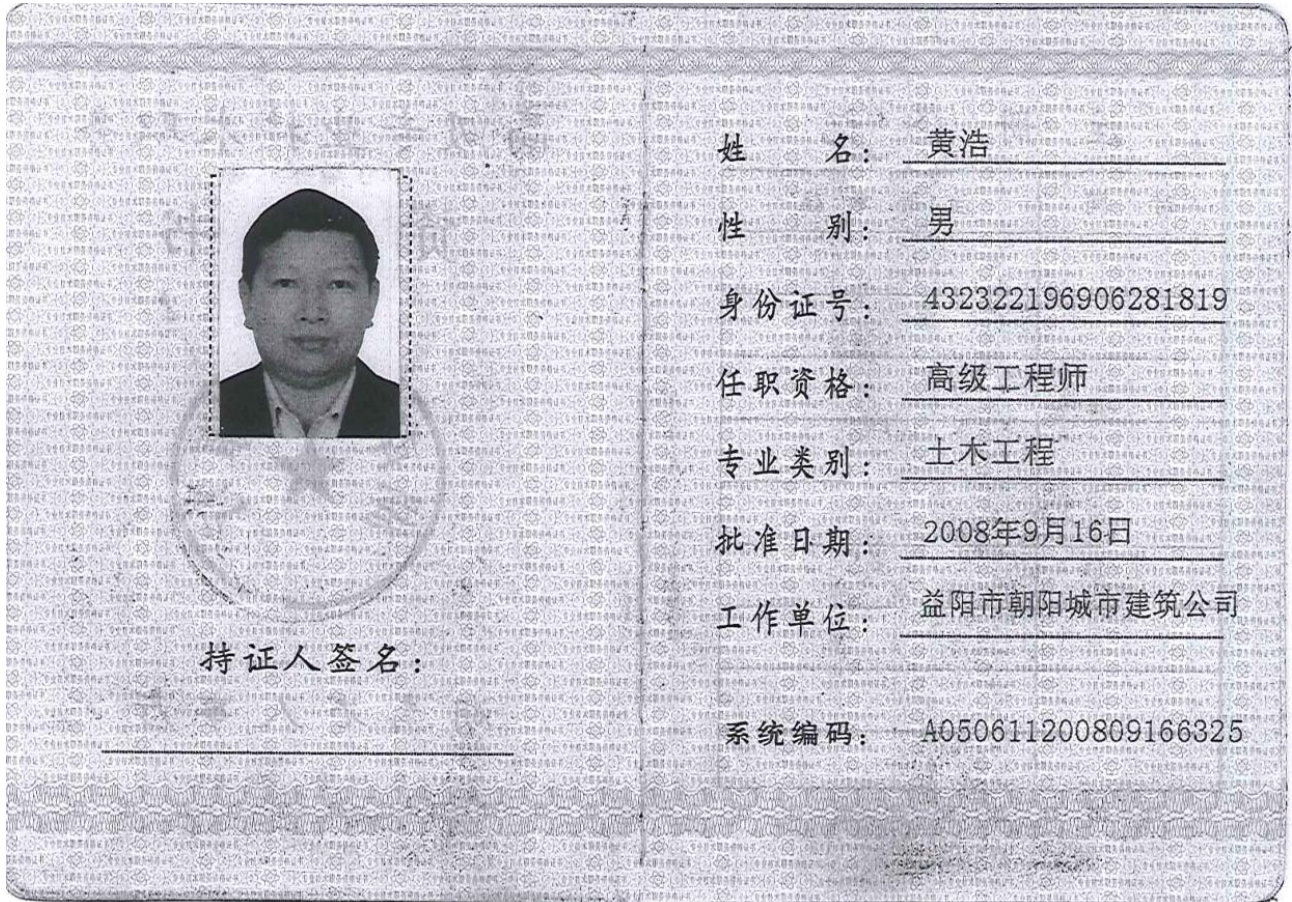 持证人签名：
姓 名： 黄浩
性 别： 男
身份证号： 432322196906281819
任职资格： 高级工程师
专业类别： 土木工程
批准日期： 2008年9月16日
工作单位： 益阳市朝阳城市建筑公司
系统编码： A050611200809166325